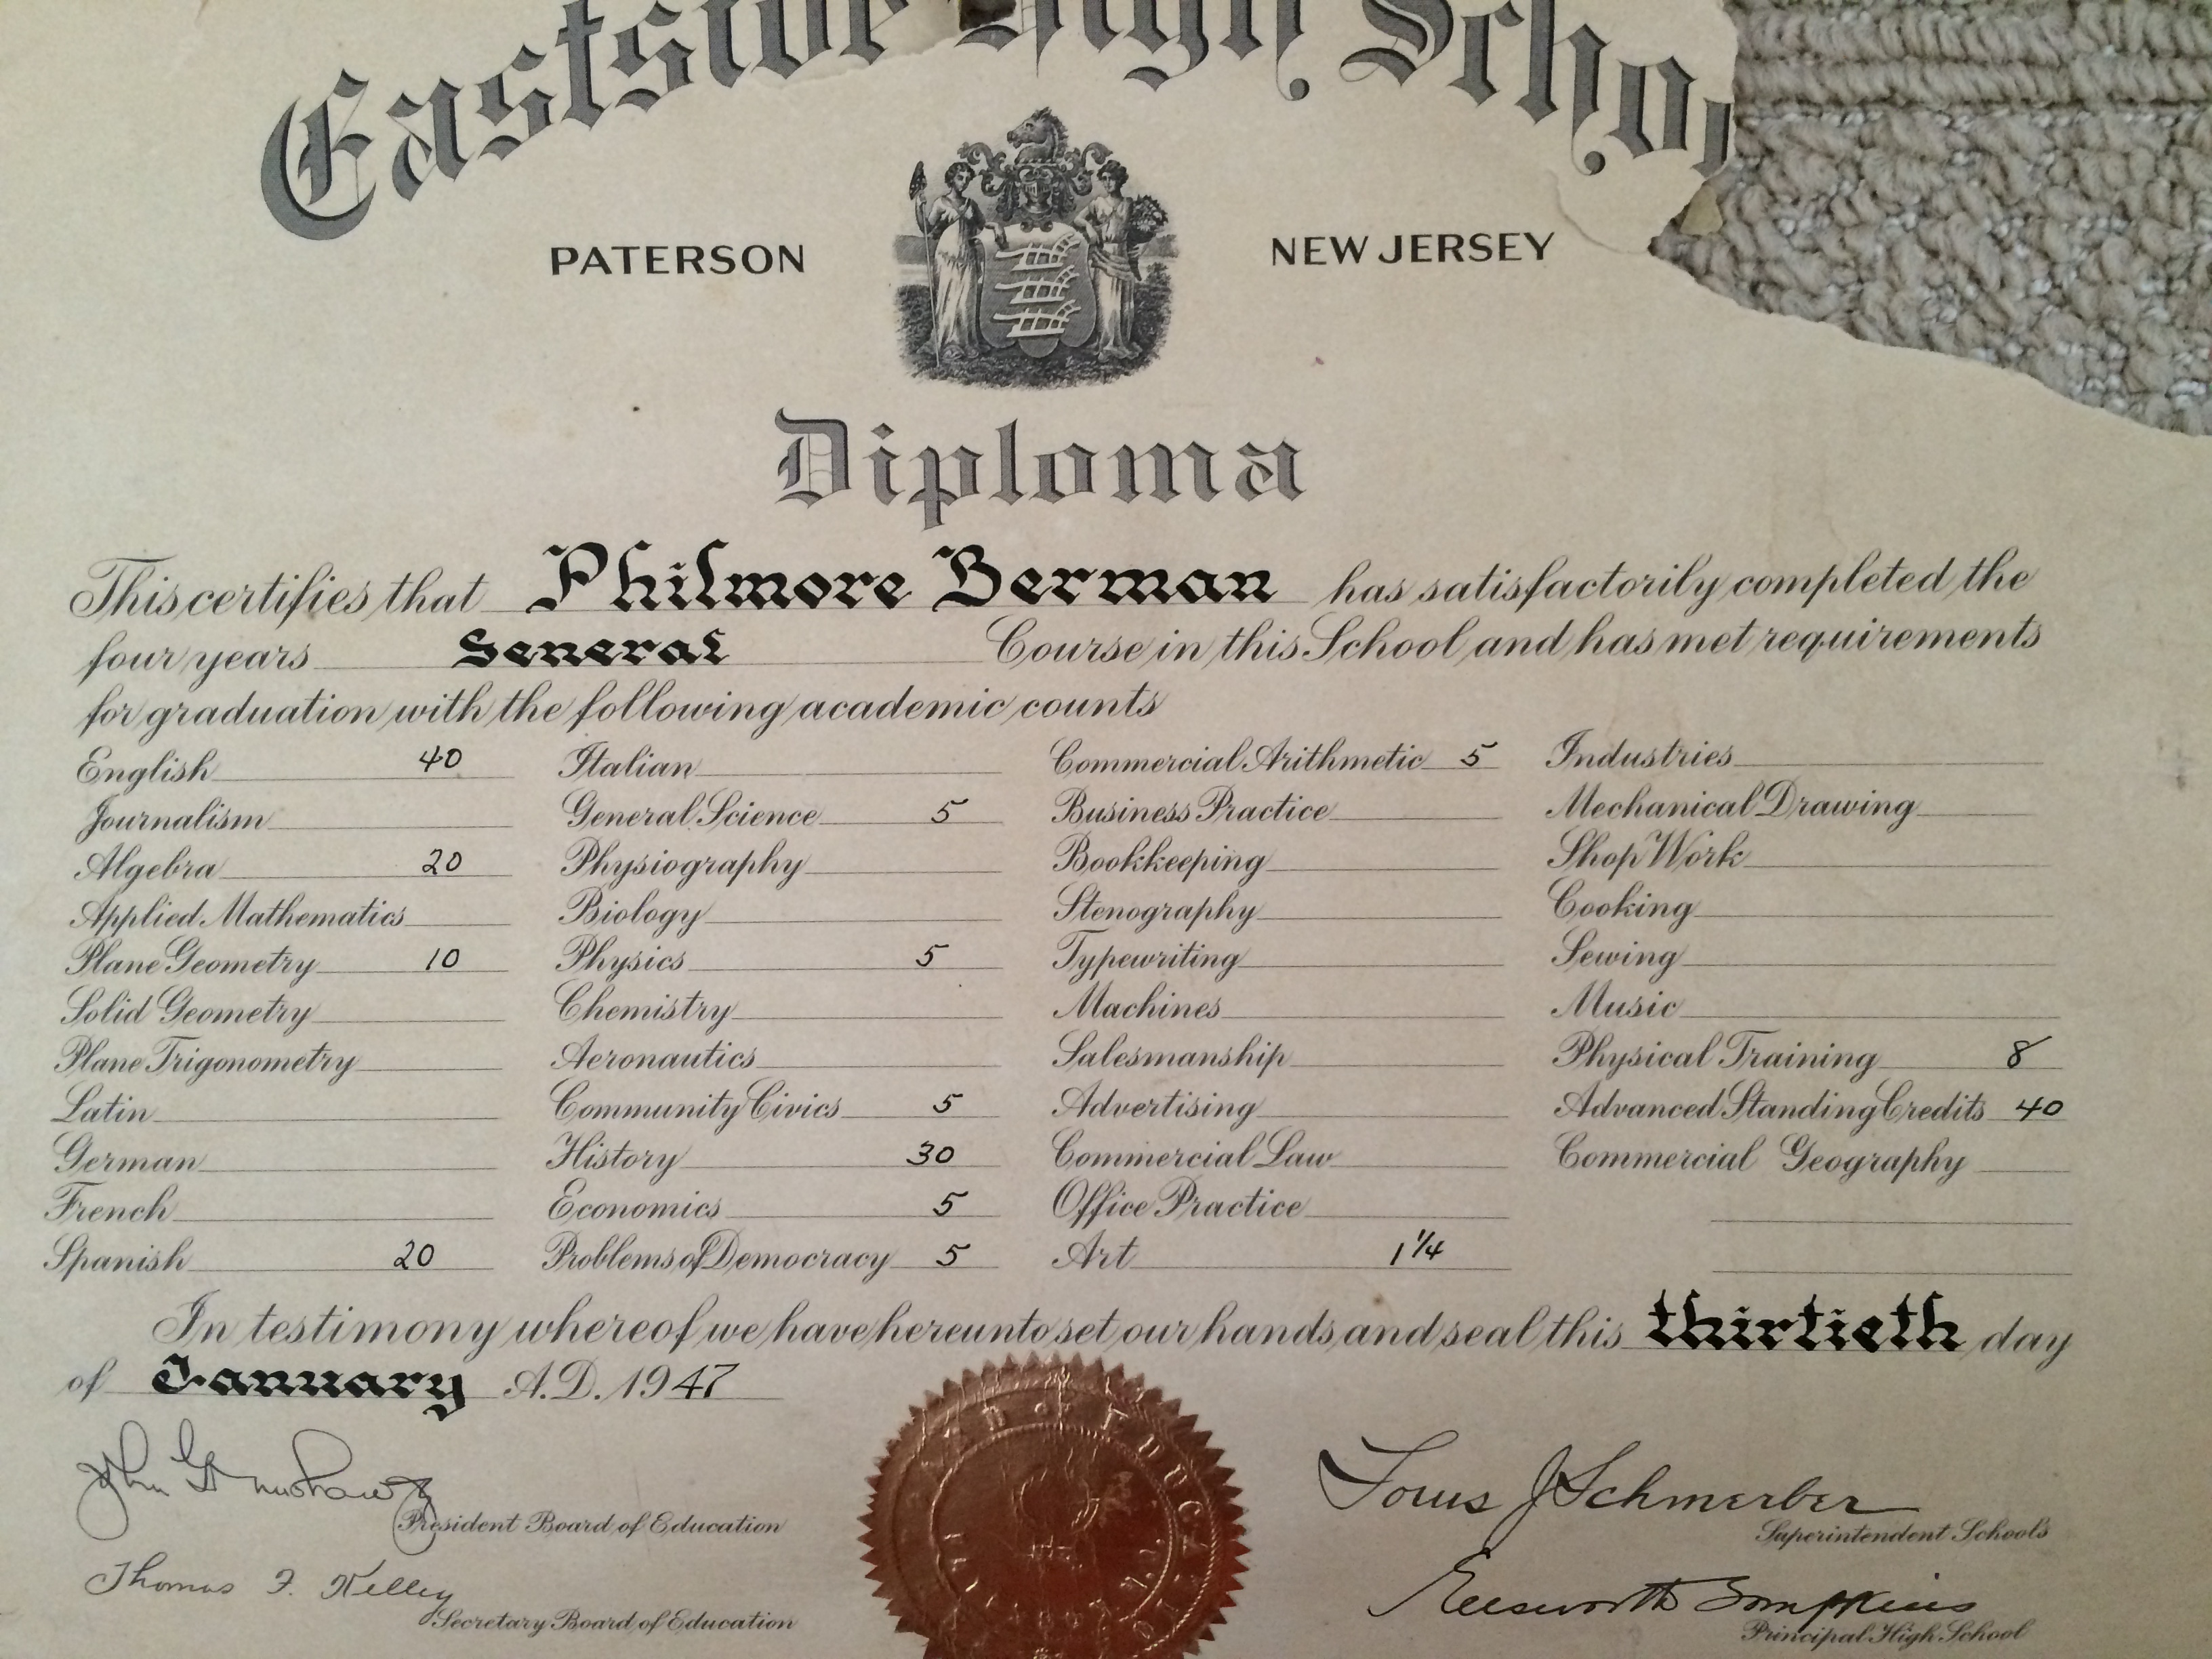 Eastside High Scho
PATERSON NEW JERSEY
Diploma
This certifies that Philmore Berman has satisfactorily completed the
four years General Course in this School and has met requirements
for graduation with the following academic counts
English 40 Italian Commercial Arithmetic 5 Industries
Journalism General Science 5 Business Practice Mechanical Drawing
Algebra 20 Physiography Bookkeeping Shop Work
Applied Mathematics Biology Stenography Cooking
Plane Geometry 10 Physics 5 Typewriting Sewing
Solid Geometry Chemistry Machines Music
Plane Trigonometry Aeronautics Salesmanship Physical Training 8
Latin Community Civics 5 Advertising Advanced Standing Credits 40
German History 30 Commercial Law Commercial Geography
French Economics 5 Office Practice
Spanish 20 Problems of Democracy 5 Art 1 1/4
In testimony whereof we have hereunto set our hands and seal this thirtieth day
of January A.D. 1947
John Grimshaw Jr
President Board of Education
Thomas F. Kelley
Secretary Board of Education
Louis J Schmerber
Superintendent Schools
Ellsworth Tompkins
Principal High School